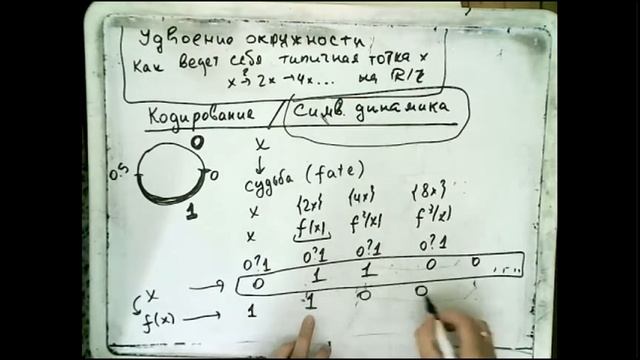 Удвоение окружности
Как ведет себя типичная точка x
x → 2x → 4x... на R/Z
Кодирование / Симв. динамика
0
0.5 0
1
x
↓
судьба (fate)
x {2x} {4x} {8x}
x f(x) f²(x) f³(x)
0?1 0?1 0?1 0?1
x → 0 1 1 0 0 ....
f(x) → 1 1 0 0